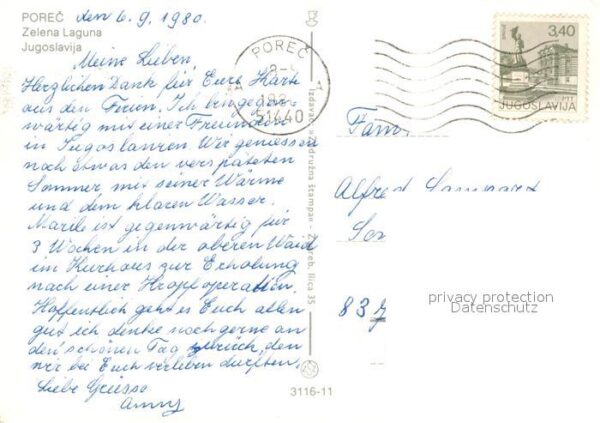 POREČ den 6.9.1980.
Zelena Laguna
Jugoslavija
Meine Lieben,
Herzlichen Dank für Eure Karte
aus den Ferien. Ich bin gegen-
wärtig mit einer Freundin
in Jugoslawien Wir geniessen
noch etwas den verspäteten
Sommer, mit seiner Wärme
und dem klaren Wasser.
ist gegenwärtig für
3 Wochen in der oberen Waid
im Kurhaus zur Erholung
nach einer Kropfoperation.
Hoffentlich geht es Euch allen
gut ich denke noch gerne an
den schönen Tag zurück, den
wir bei Euch verleben durften,
Liebe Grüsse
POREČ
51440
Izdavač: »Zadružna štampa« - Zagreb, Ilica 35
3116-11
3,40
JUGOSLAVIJA
Fam.
Alfred
837
privacy protection
Datenschutz